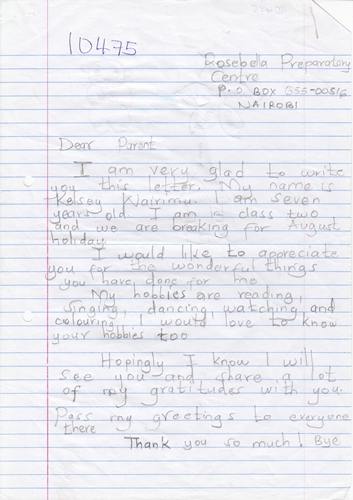 10475
Rosebella Preparatory
Centre
P.O BOX 655-00516
NAIROBI
Dear Parent
I am very glad to write
you this letter. My name is
Kelsey Wairimu. I am seven
years old. I am in class two
and we are breaking for August
holiday.
I would like to appreciate
you for the wonderful things
you have done for me
My hobbies are reading,
singing, dancing, watching and
colouring. I would love to know
your hobbies too
Hopingly I know I will
see you and share a lot
of my gratitudes with you.
Pass my greetings to everyone
there
Thank you so much! Bye